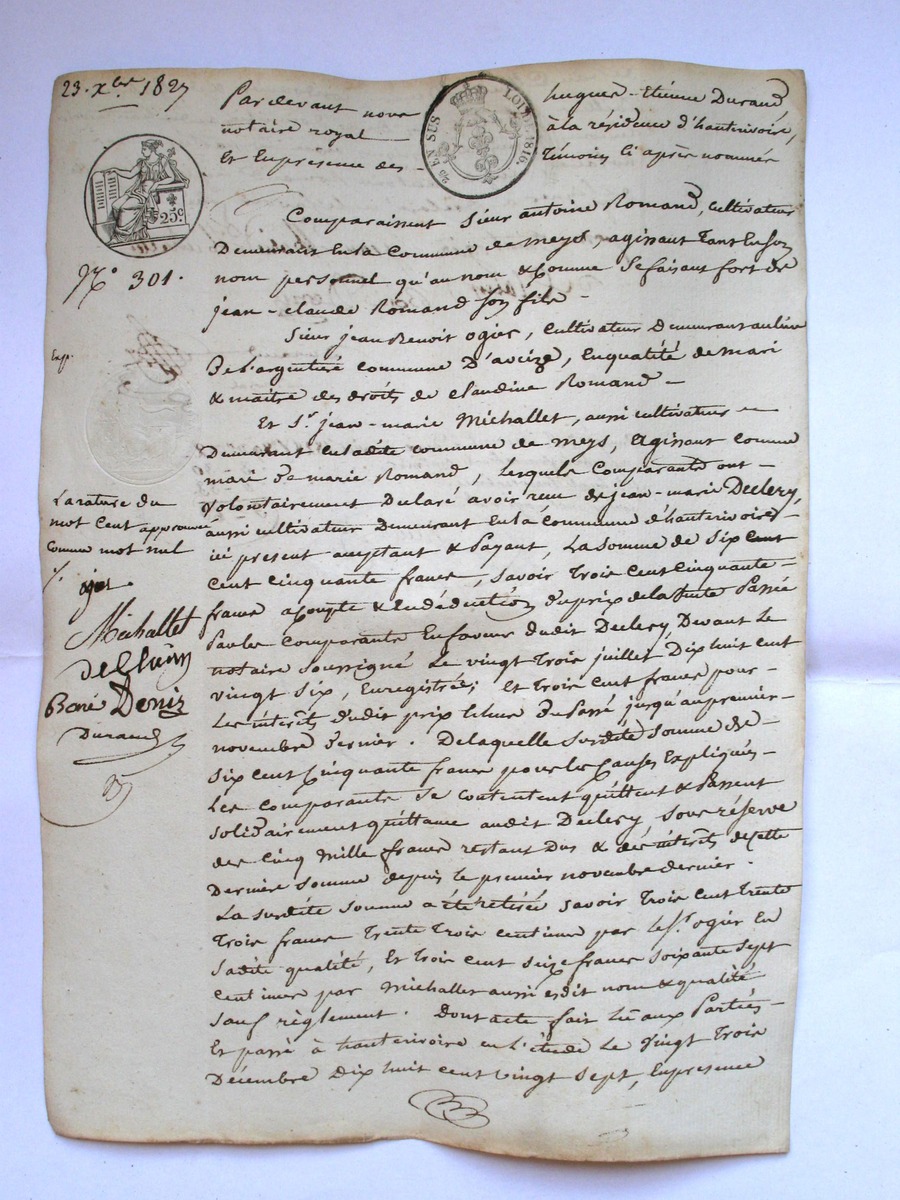 23. Xbre 1827
Pardevant nous hugues-Etienne Durand
notaire royal à la résidence d'hauterivoire,
Et En présence des témoins ci après nommés
EN SUS LOI DE 1816.
25c
N.° 301.
Comparaissent Sieur antoine Romand, cultivateur
Demeurant En la Commune de meys, agissant Tant En son
nom personnel qu'au nom & Comme Se faisant fort de
jean-claude Romand son fils -
Sieur jean Benoit ogier, Cultivateur Demeurant au lieu
Exp.
De l'argentiere commune D'aveize, En qualité de mari
& maitre des droits de claudine Romand -
Et Sr. jean-marie Michallet, aussi cultivateur
Demeurant en ladite commune de meys, agissant comme
mari de marie Romand, lesquels Comparants ont -
Volontairement Declaré avoir reçu de jean-marie Declery,
aussi cultivateur Demeurant En la Commune d'hauterivoire,
ici présent acceptant & Payant, La Somme de Six Cent
Cent Cinquante francs, Savoir Trois Cent Cinquante -
francs a Compte & En déduction du prix de la Vente Passée
Par les Comparants En faveur dudit Declery, Devant le
notaire soussigné Le vingt trois juillet Dix huit cent
vingt six, Enregistrée; Et Trois Cent francs pour -
Les intérêts dudit prix jusqu'au premier -
novembre Dernier. De laquelle susdite somme de -
Six cent Cinquante francs pour les Causes Expliquées -
Les Comparants Se Contentent quittent & Passent
Solidairement quittance audit Declery sous réserve
des Cinq mille francs restant Dus & des intérêts de cette
Dernière somme depuis le premier novembre dernier.
La susdite somme a été retirée Savoir Trois Cent Trente
Trois francs Trente Trois centimes par le Sr. ogier En
Sadite qualité, Et Trois cent seize francs soixante sept
Centimes par Michallet aussi esdit nom & qualité,
sauf règlement. Dont acte fait lu aux Parties -
Et passé à hauterivoire en l'étude Le Vingt Trois
Décembre Dix huit cent Vingt Sept, En présence
La rature du
mot Cent approuvée
Comme mot nul
Michallet
Deniz
Durand